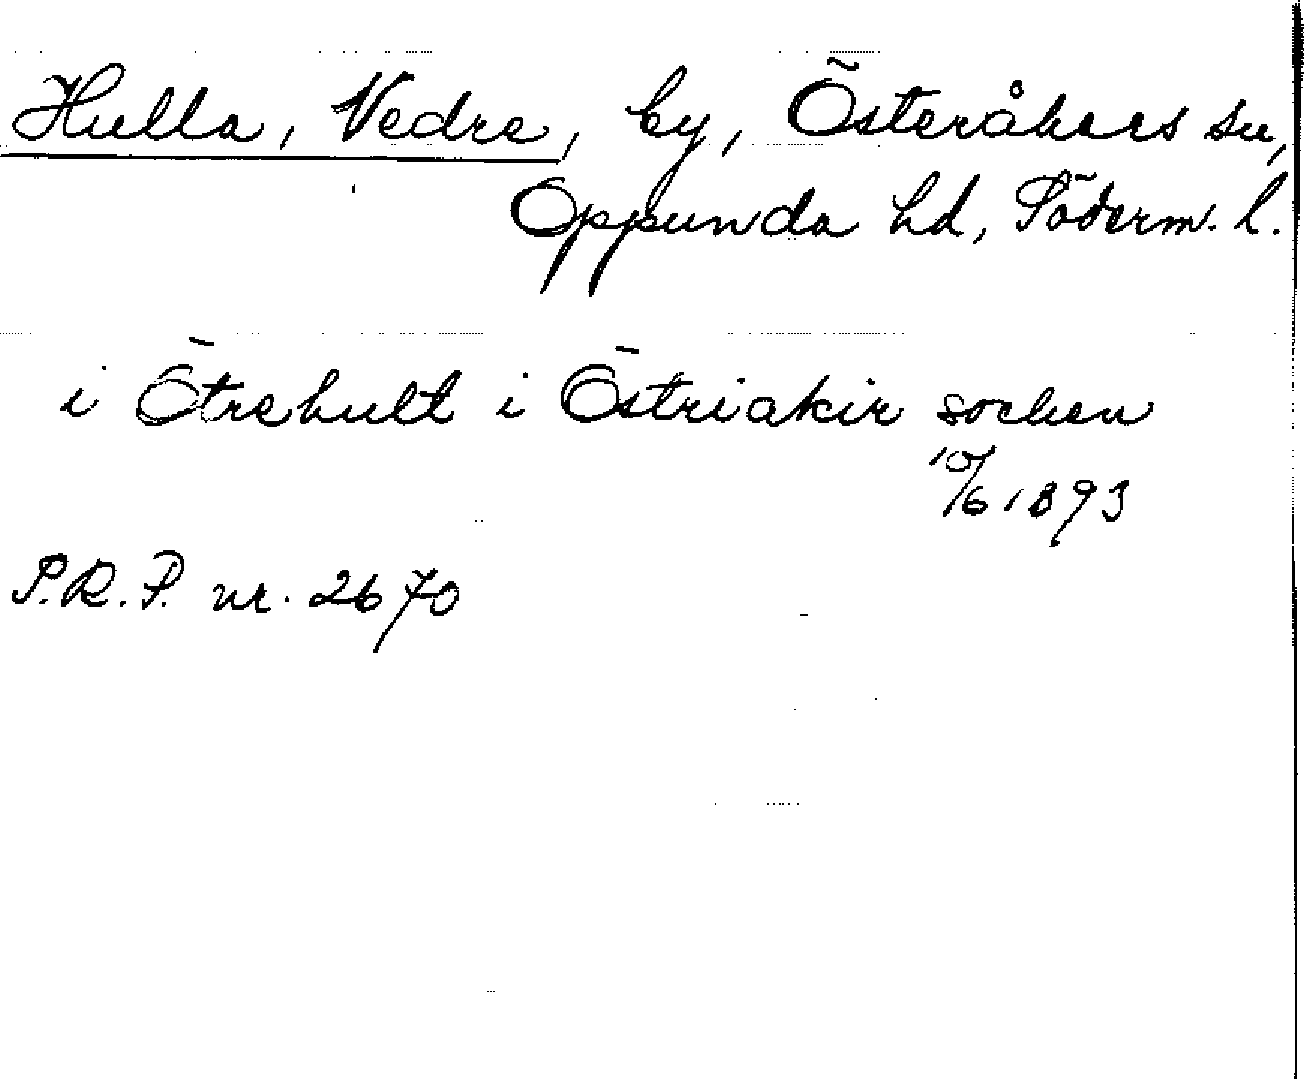 Hulla, Nedre, by, Österåkers sn,
Oppunda hd, Söderm. l.
i Ötrehult i Östriakir socken
10/6 1893
S.R.P. nr. 2670